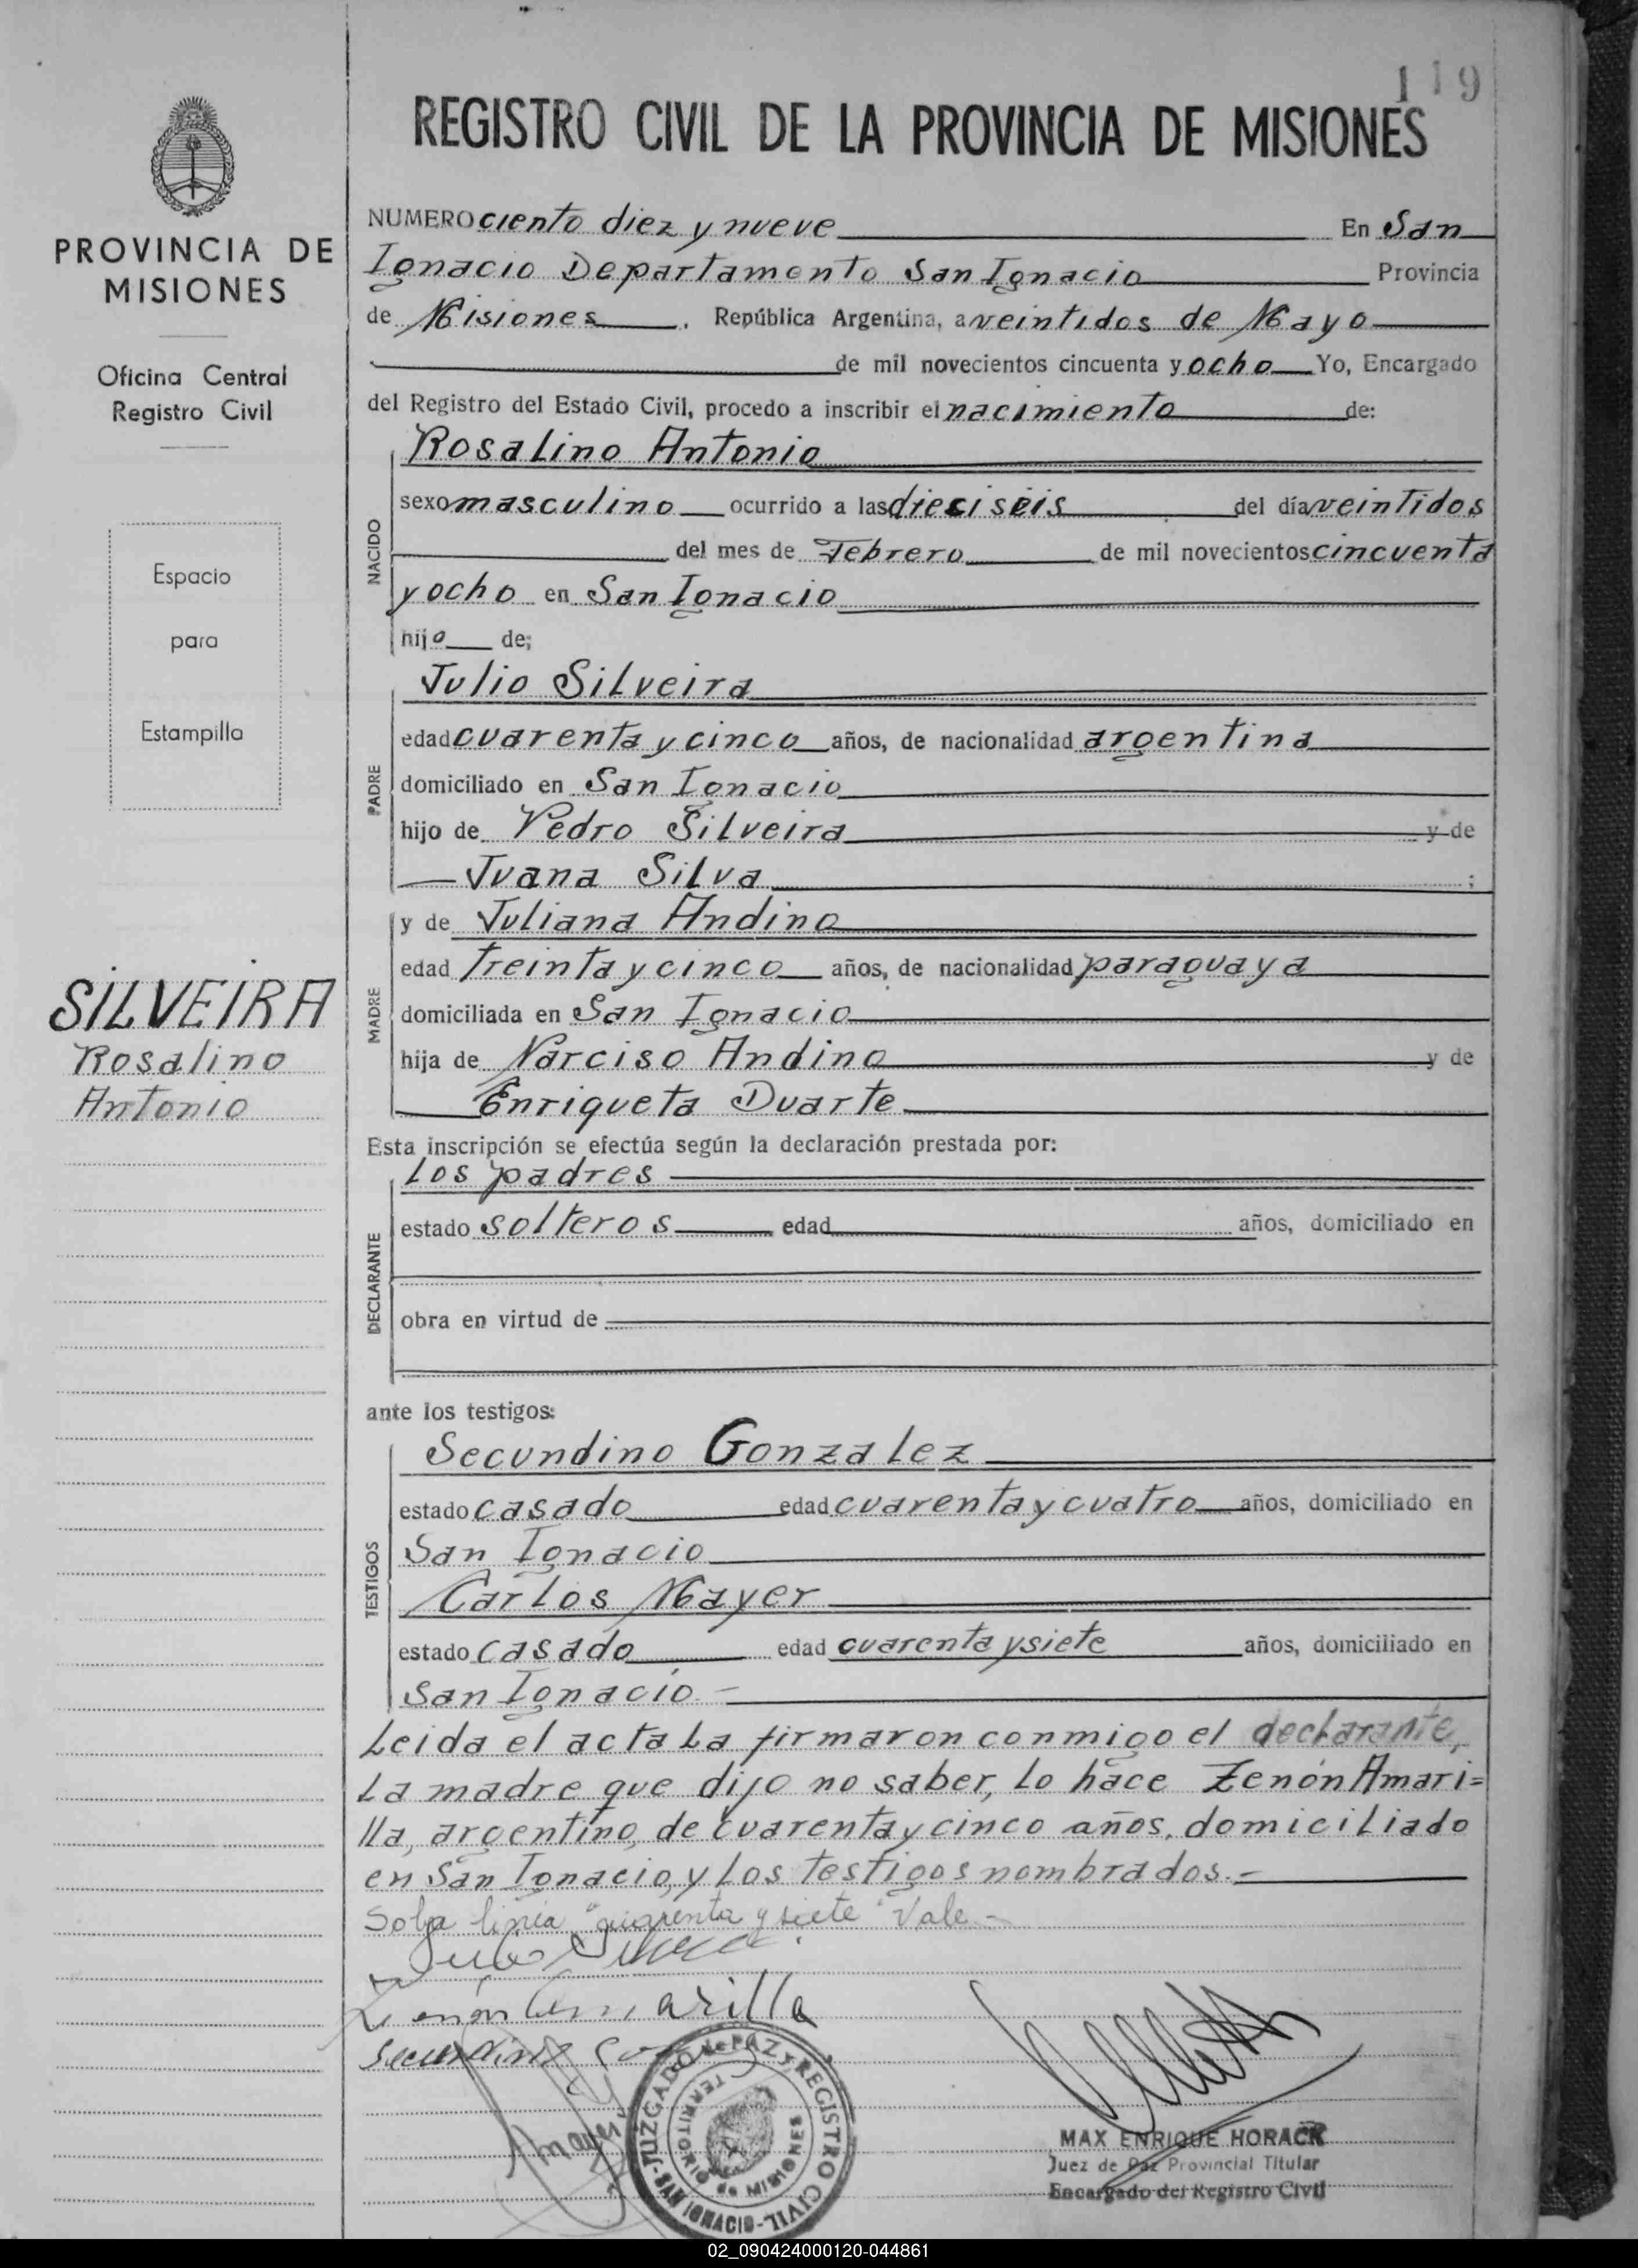 119
REGISTRO CIVIL DE LA PROVINCIA DE MISIONES
PROVINCIA DE
MISIONES
Oficina Central
Registro Civil
Espacio
para
Estampilla
SILVEIRA
Rosalino
Antonio
NUMERO ciento diez y nueve En San
Ignacio Departamento San Ignacio Provincia
de Misiones, República Argentina, a veintidos de Mayo
de mil novecientos cincuenta y ocho Yo, Encargado
del Registro del Estado Civil, procedo a inscribir el nacimiento de:
NACIDO
Rosalino Antonio
sexo masculino ocurrido a las dieciséis del día veintidos
del mes de Febrero de mil novecientos cincuenta
y ocho en San Ignacio
hijo de;
PADRE
Julio Silveira
edad cuarenta y cinco años, de nacionalidad argentina
domiciliado en San Ignacio
hijo de Pedro Silveira y de
Juana Silva ;
MADRE
y de Juliana Andino
edad treinta y cinco años, de nacionalidad paraguaya
domiciliada en San Ignacio
hija de Narciso Andino y de
Enriqueta Duarte
Esta inscripción se efectúa según la declaración prestada por:
DECLARANTE
los padres
estado solteros edad años, domiciliado en
obra en virtud de
ante los testigos:
TESTIGOS
Secundino Gonzalez
estado casado edad cuarenta y cuatro años, domiciliado en
San Ignacio
Carlos Mayer
estado casado edad cuarenta y siete años, domiciliado en
San Ignacio.-
Leida el acta la firmaron conmigo el declarante,
la madre que dijo no saber, lo hace Zenón Amari=
lla, argentino, de cuarenta y cinco años, domiciliado
en San Ignacio, y los testigos nombrados.-
Sobre linea "cuarenta y siete" Vale.-
Julio Silveira
Zenón Amarilla
Secundino
JUZGADO de PAZ y REGISTRO CIVIL - SAN IGNACIO -
TERRITORIO de MISIONES
MAX ENRIQUE HORACK
Juez de Paz Provincial Titular
Encargado del Registro Civil
02_090424000120-044861